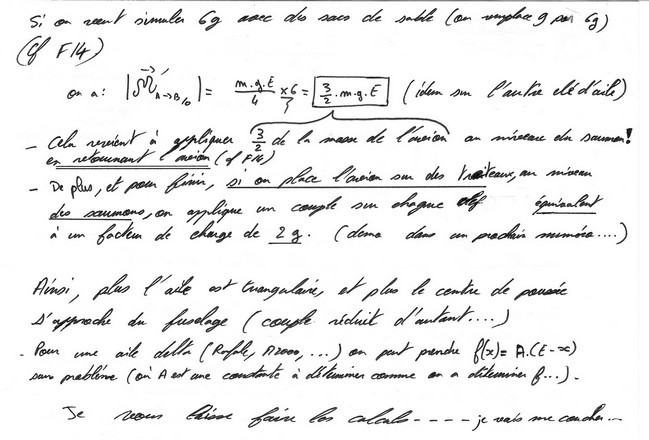 Si on veut simuler 6g avec des sacs de sable (on remplace g par 6g)
(cf F14)
on a : |M⃗'A→B/0| = m.g.E/4 ×6 = 3/2 .m.g.E (idem sur l'autre clé d'aile)
- Cela revient à appliquer 3/2 de la masse de l'avion au niveau du saumon!
en retournant l'avion (cf F14)
- De plus, et pour finir, si on place l'avion sur des tréteaux, au niveau
des saumons, on applique un couple sur chaque clef équivalent
à un facteur de charge de 2g. (démo dans un prochain numéro....)
Ainsi, plus l'aile est triangulaire, et plus le centre de poussée
s'approche du fuselage (couple réduit d'autant....)
- Pour une aile delta (Rafale, M2000, ...) on peut prendre f(x)= A.(E-x)
sans problème (où A est une constante à déterminer comme on a déterminer f...).
Je vous laisse faire les calculs - - - - je vais me coucher...